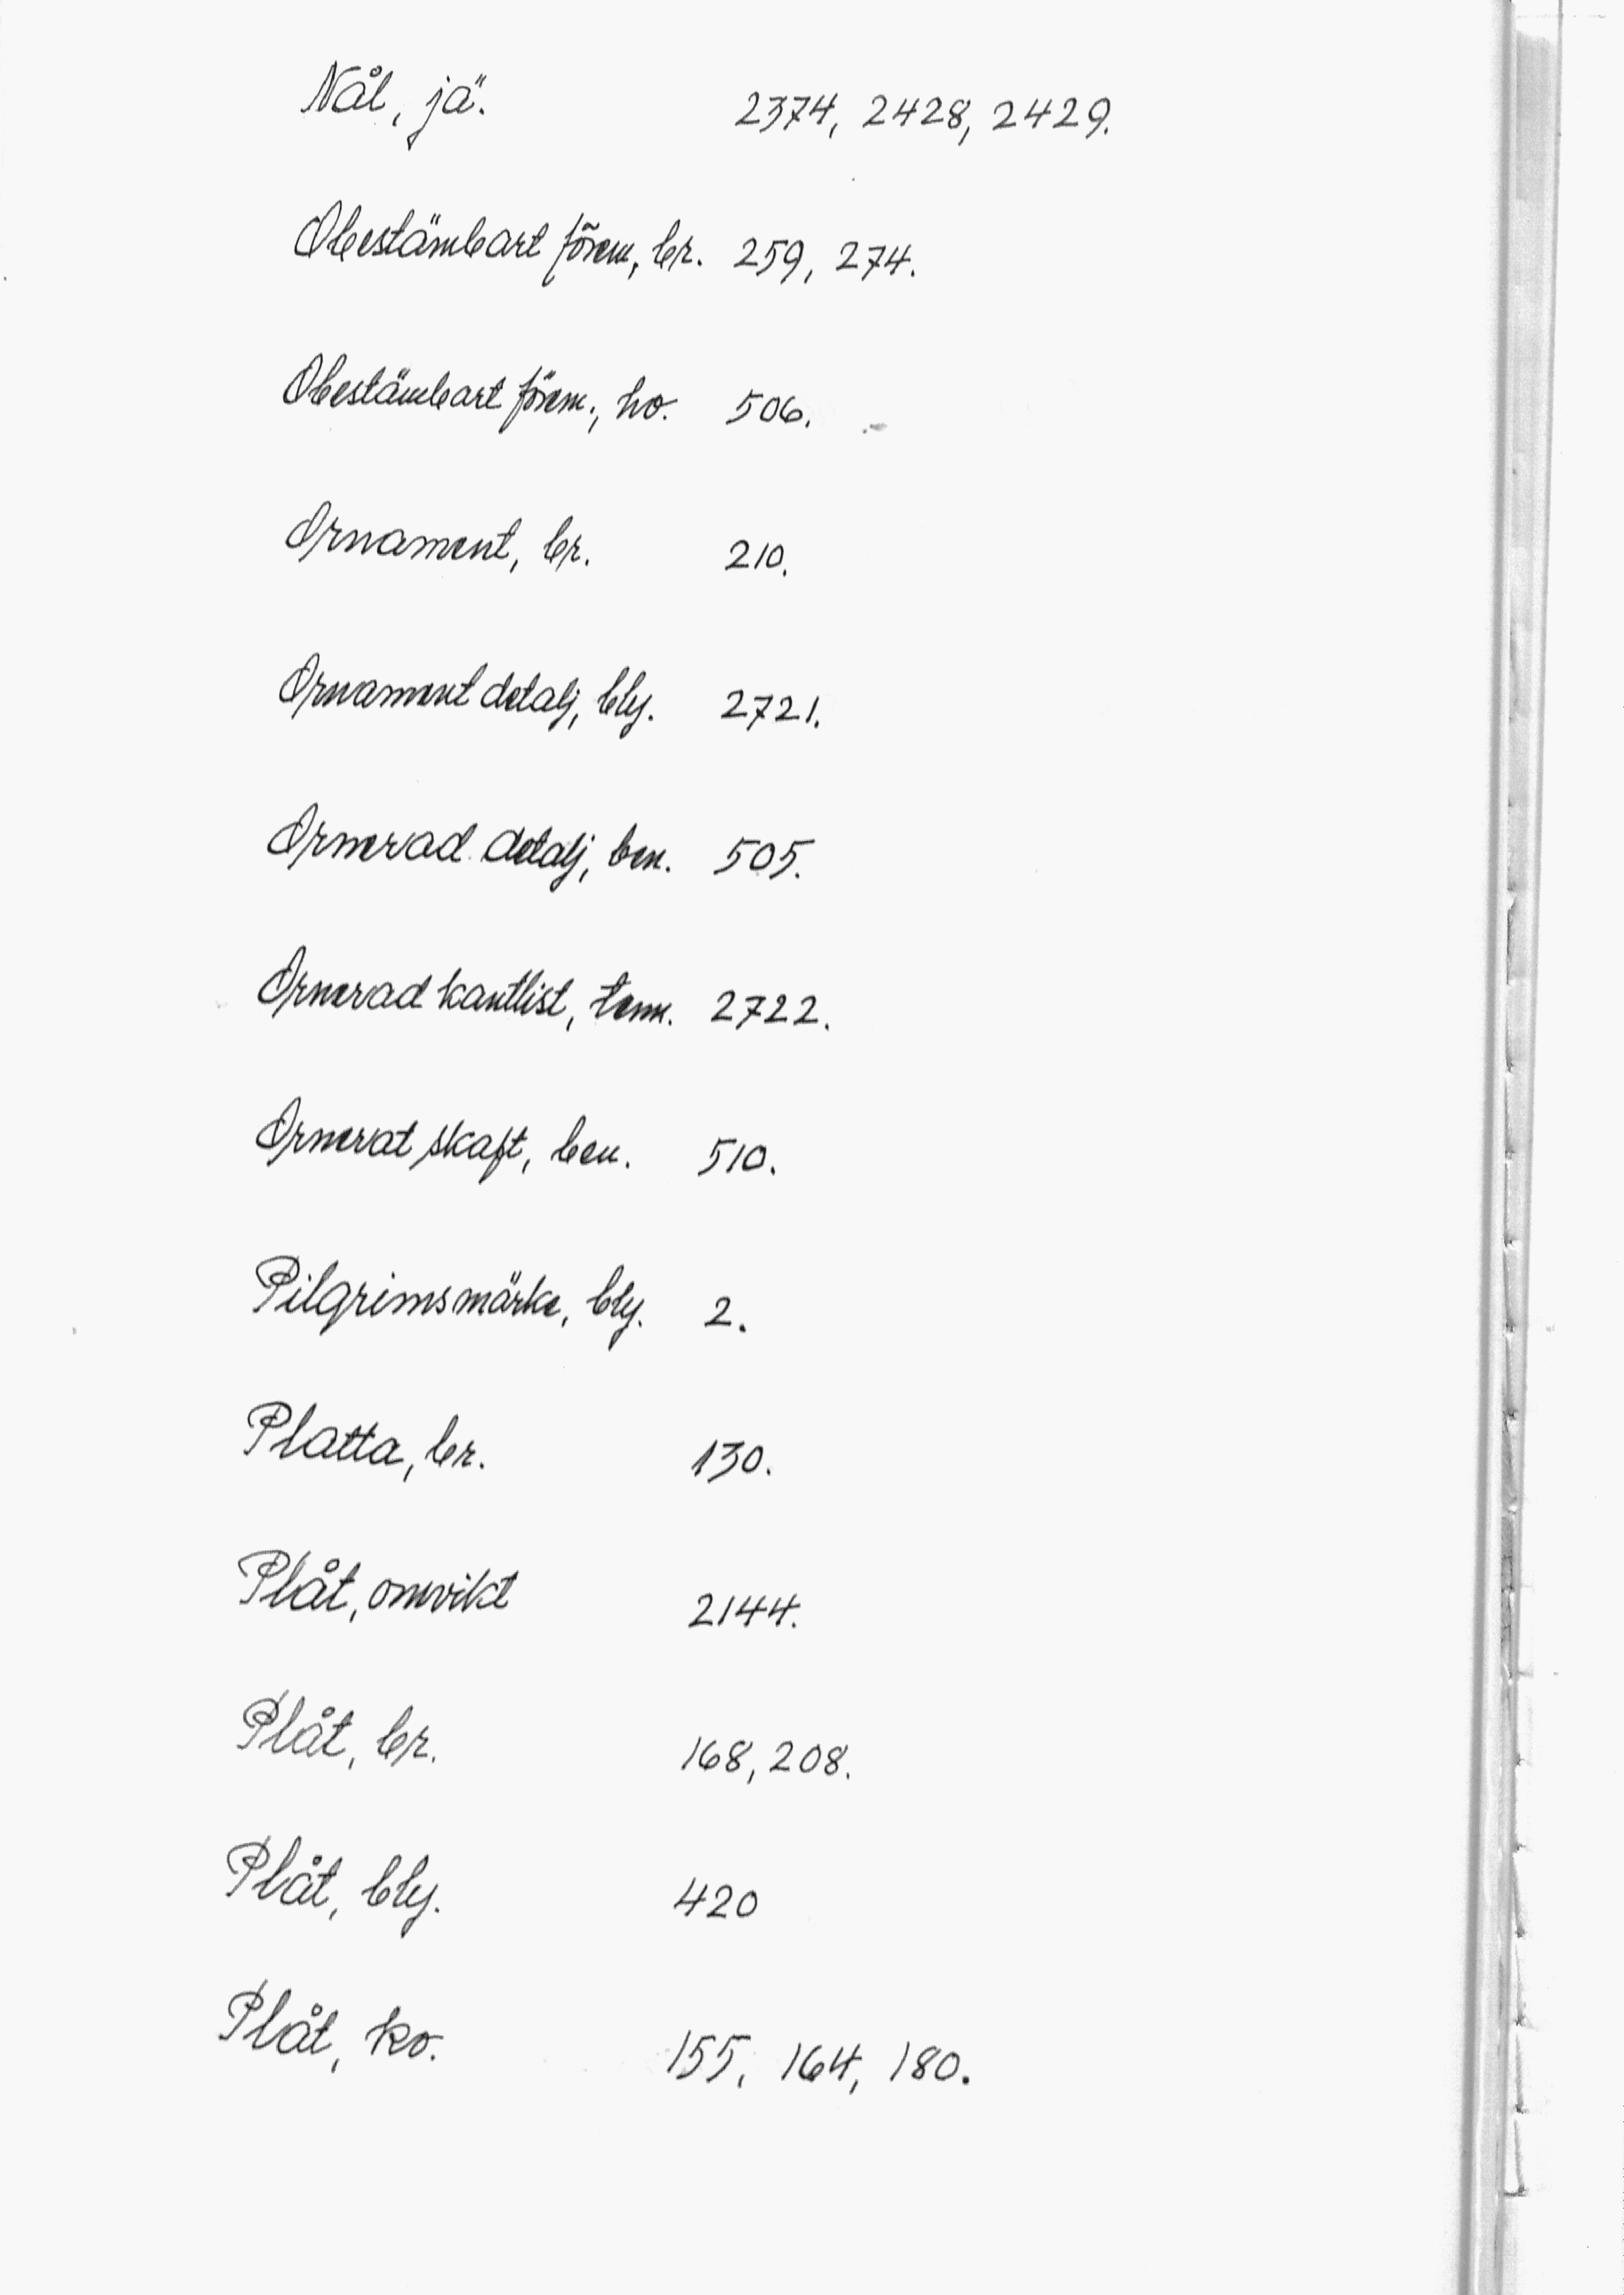 Nål, jä. 2374, 2428, 2429.
Obestämbart förem, br. 259, 274.
Obestämbart förem., ho. 506.
Ornament, br. 210.
Ornament detalj, bly. 2721.
Ornerad detalj, ben. 505.
Ornerad kantlist, tenn. 2722.
Ornerat skaft, ben. 510.
Pilgrimsmärke, bly. 2.
Platta, br. 130.
Plåt, omvikt 2144.
Plåt, br. 168, 208.
Plåt, bly. 420
Plåt, ko. 155, 164, 180.